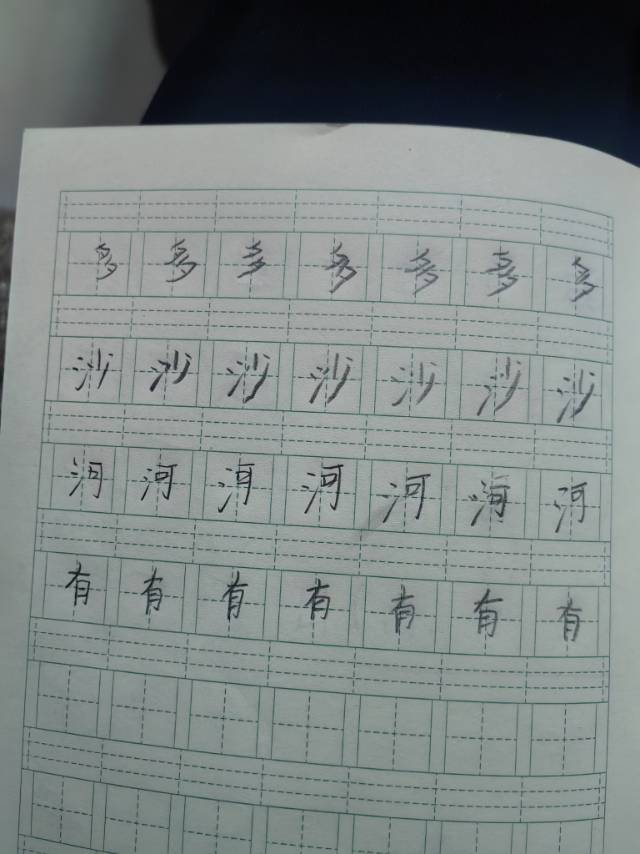 多多多多多多多
沙沙沙沙沙沙沙
河河河河河河河
有有有有有有有